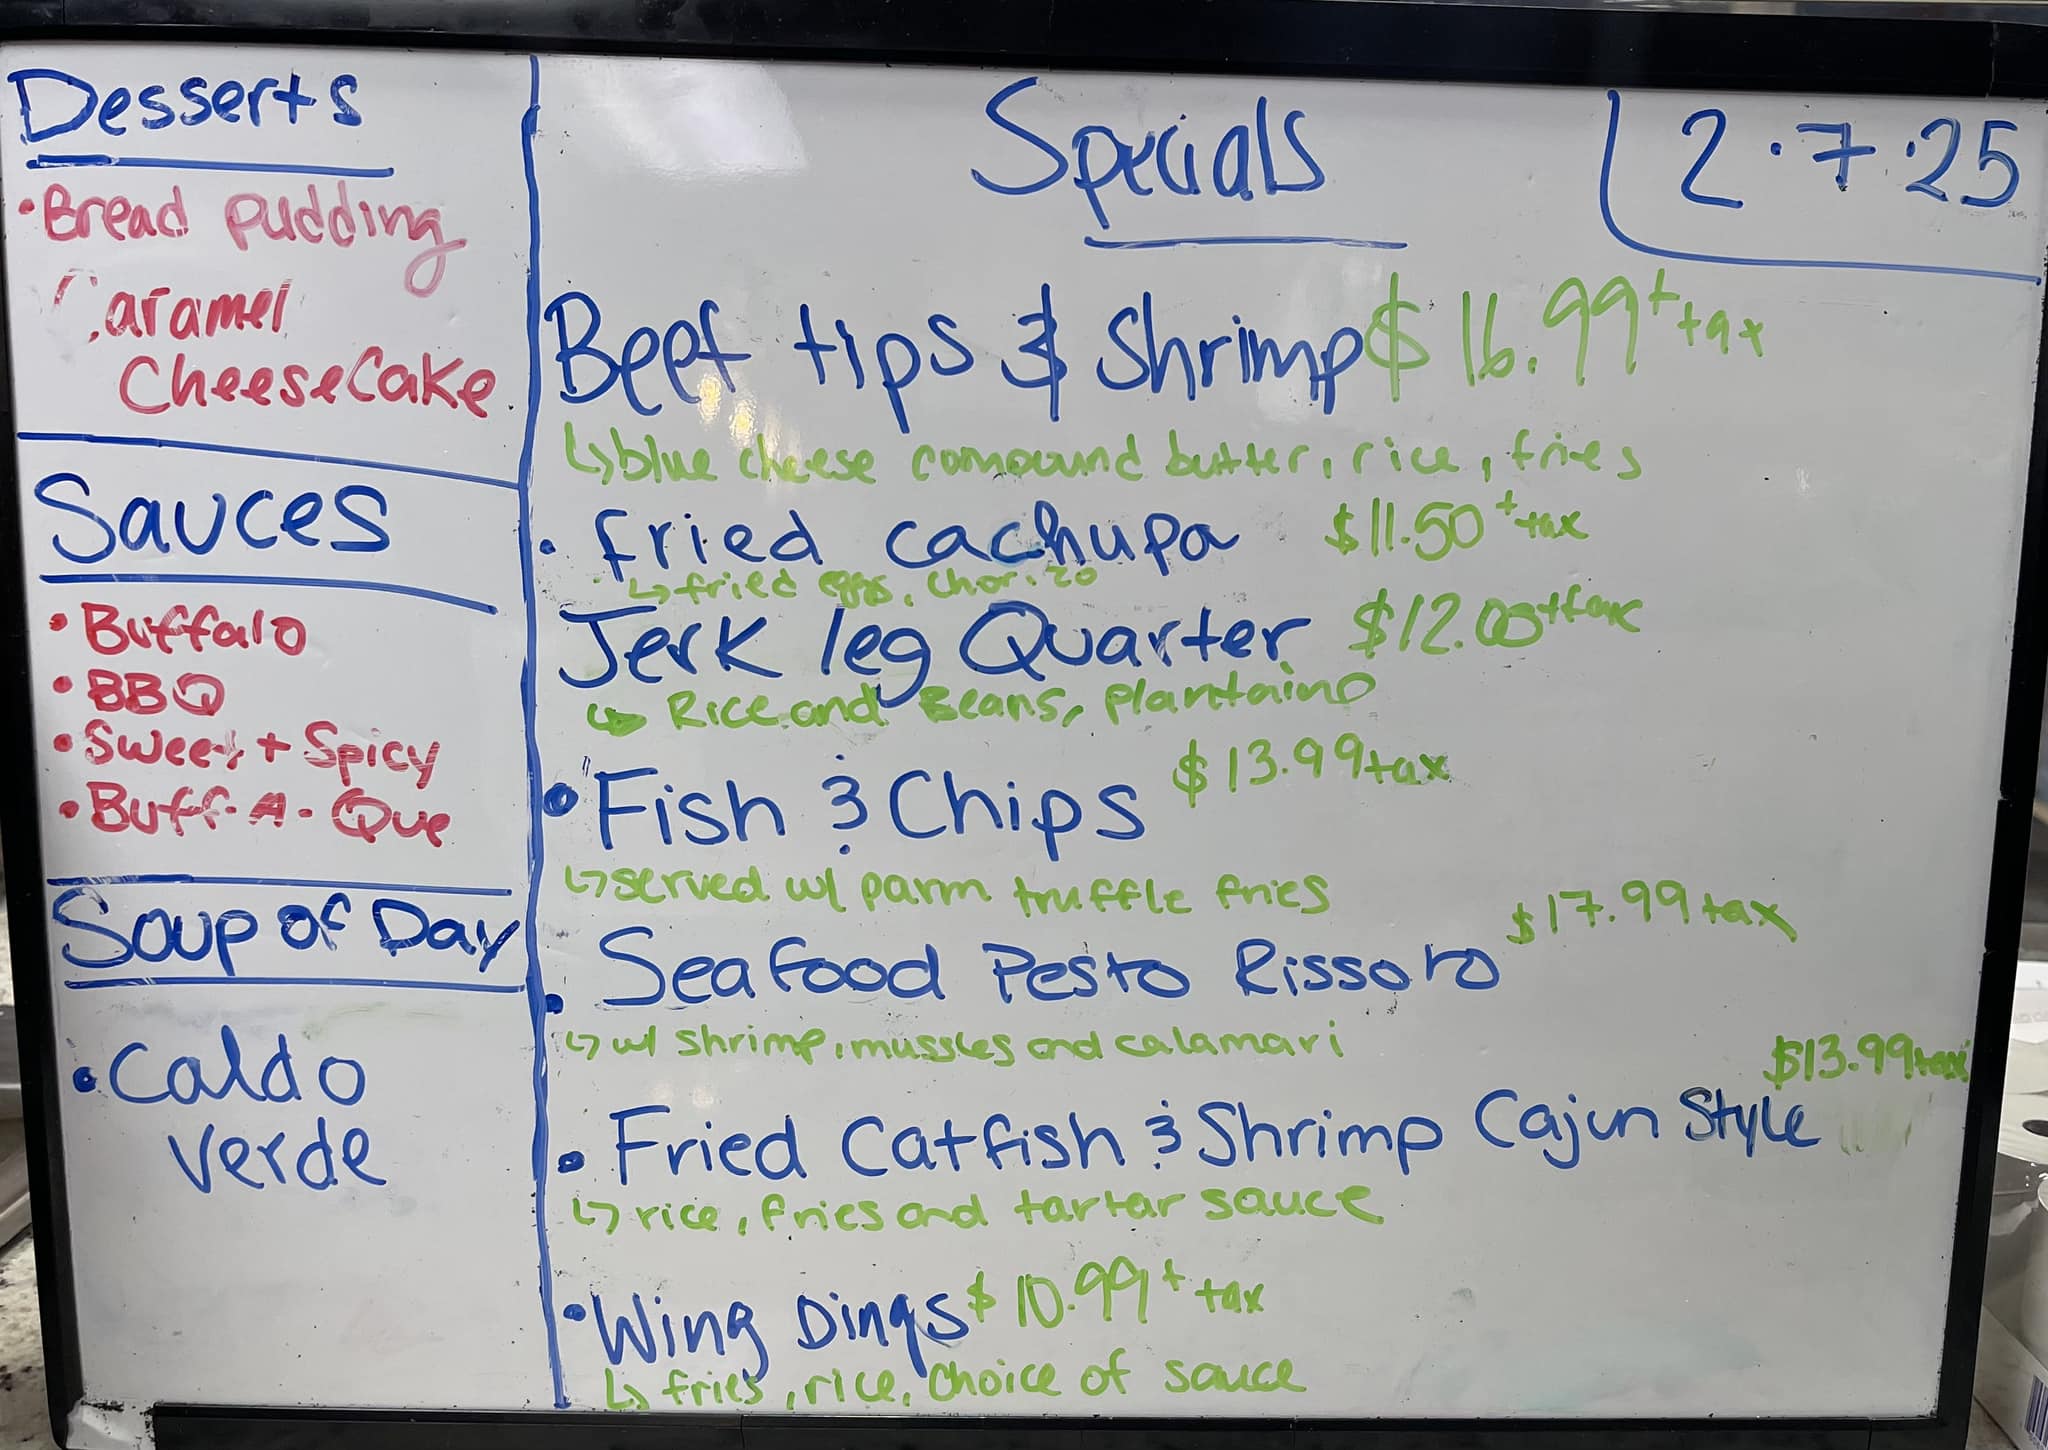 Desserts
• Bread pudding
Caramel
CheeseCake
Sauces
• Buffalo
• BBQ
• Sweet + Spicy
• Buff-A-Que
Soup of Day
• Caldo
Verde
Specials
2.7.25
Beef tips & Shrimp $16.99 + tax
↳ blue cheese compound butter, rice, fries
• Fried cachupa $11.50 + tax
↳ fried eggs, chorizo
Jerk leg Quarter $12.00 + tax
↳ Rice and Beans, plantain
• Fish & Chips $13.99 tax
↳ served w/ parm truffle fries
• Seafood Pesto Rissoto $17.99 tax
↳ w/ shrimp, mussles and calamari
• Fried Catfish & Shrimp Cajun Style $13.99 tax
↳ rice, fries and tartar sauce
• Wing Dings $10.99 + tax
↳ fries, rice, choice of sauce